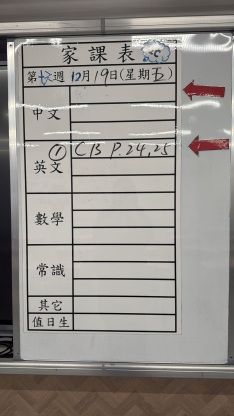 家課表
第十六週 12月19日(星期五)
中文
① CB P.24,25
英文
數學
常識
其它
值日生